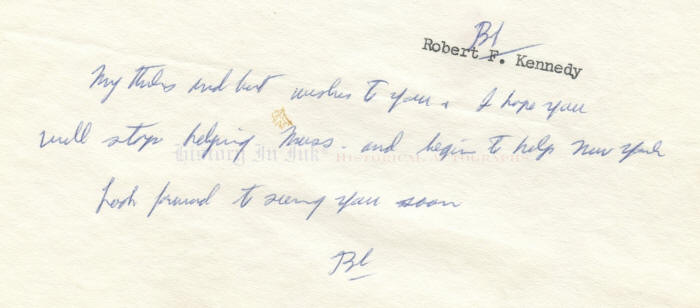 Bob
Robert F. Kennedy
My thanks and best wishes to you. I hope you
will stop helping Mass. and begin to help New York
History In Ink® HISTORICAL AUTOGRAPHS
Look forward to seeing you soon
Bob